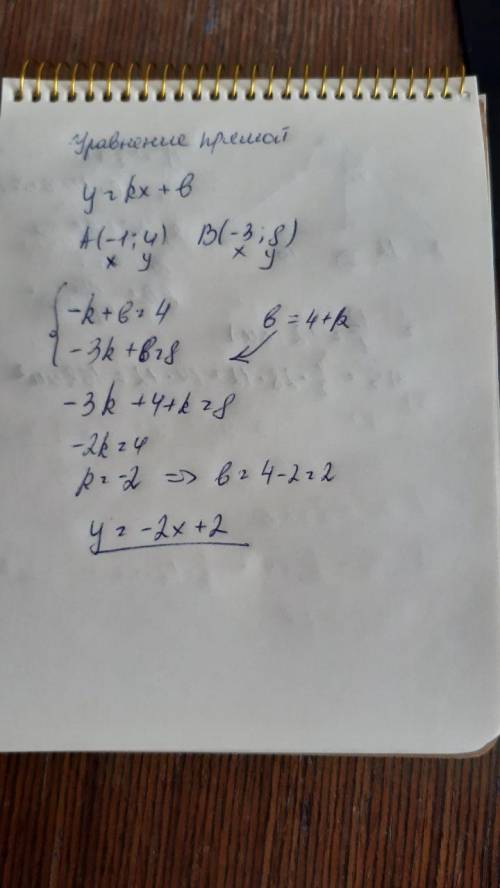 Уравнение прямой
y = kx + b
A(-1; 4) B(-3; 8)
x y x y
-k + b = 4 b = 4 + k
-3k + b = 8
-3k + 4 + k = 8
-2k = 4
k = -2 => b = 4 - 2 = 2
y = -2x + 2